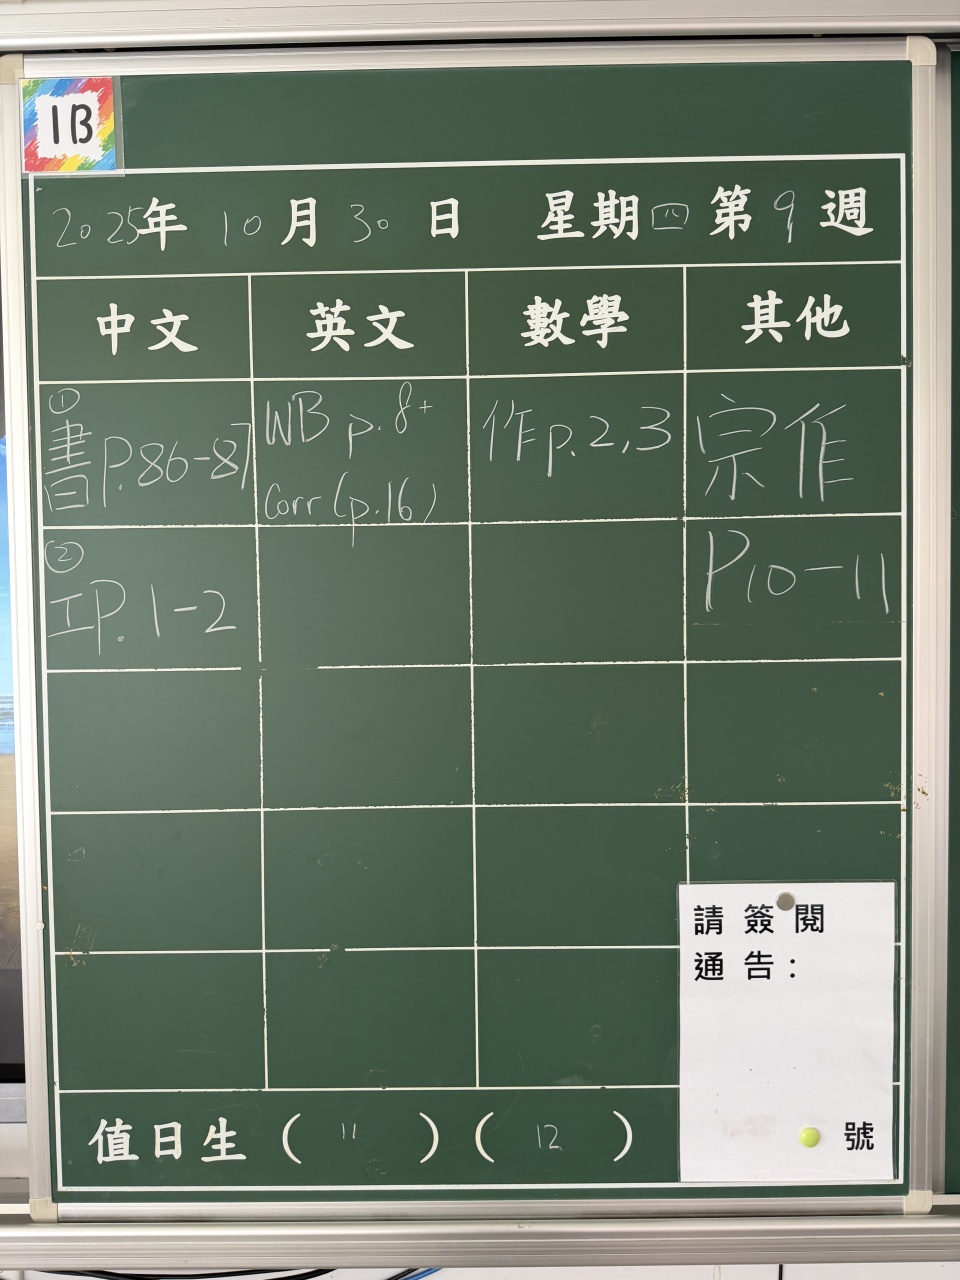 1B
2025年 10月 30日 星期四 第9週
中文 英文 數學 其他
① 書P.86-87
WB p.8+
Corr (p.16)
作p.2,3
宗作
② 工P.1-2
P10-11
請簽閱
通告：
號
值日生 ( 11 ) ( 12 )